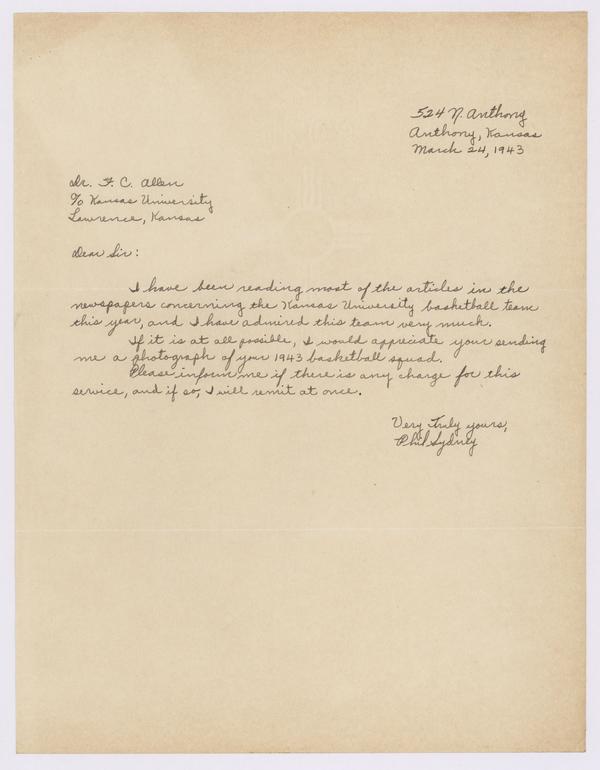 524 N. Anthony
Anthony, Kansas
March 24, 1943
Dr. F. C. Allen
c/o Kansas University
Lawrence, Kansas
Dear Sir:
I have been reading most of the articles in the
newspapers concerning the Kansas University basketball team
this year, and I have admired this team very much.
If it is at all possible, I would appreciate your sending
me a photograph of your 1943 basketball squad.
Please inform me if there is any charge for this
service, and if so, I will remit at once.
Very Truly yours,
Phil Sydney